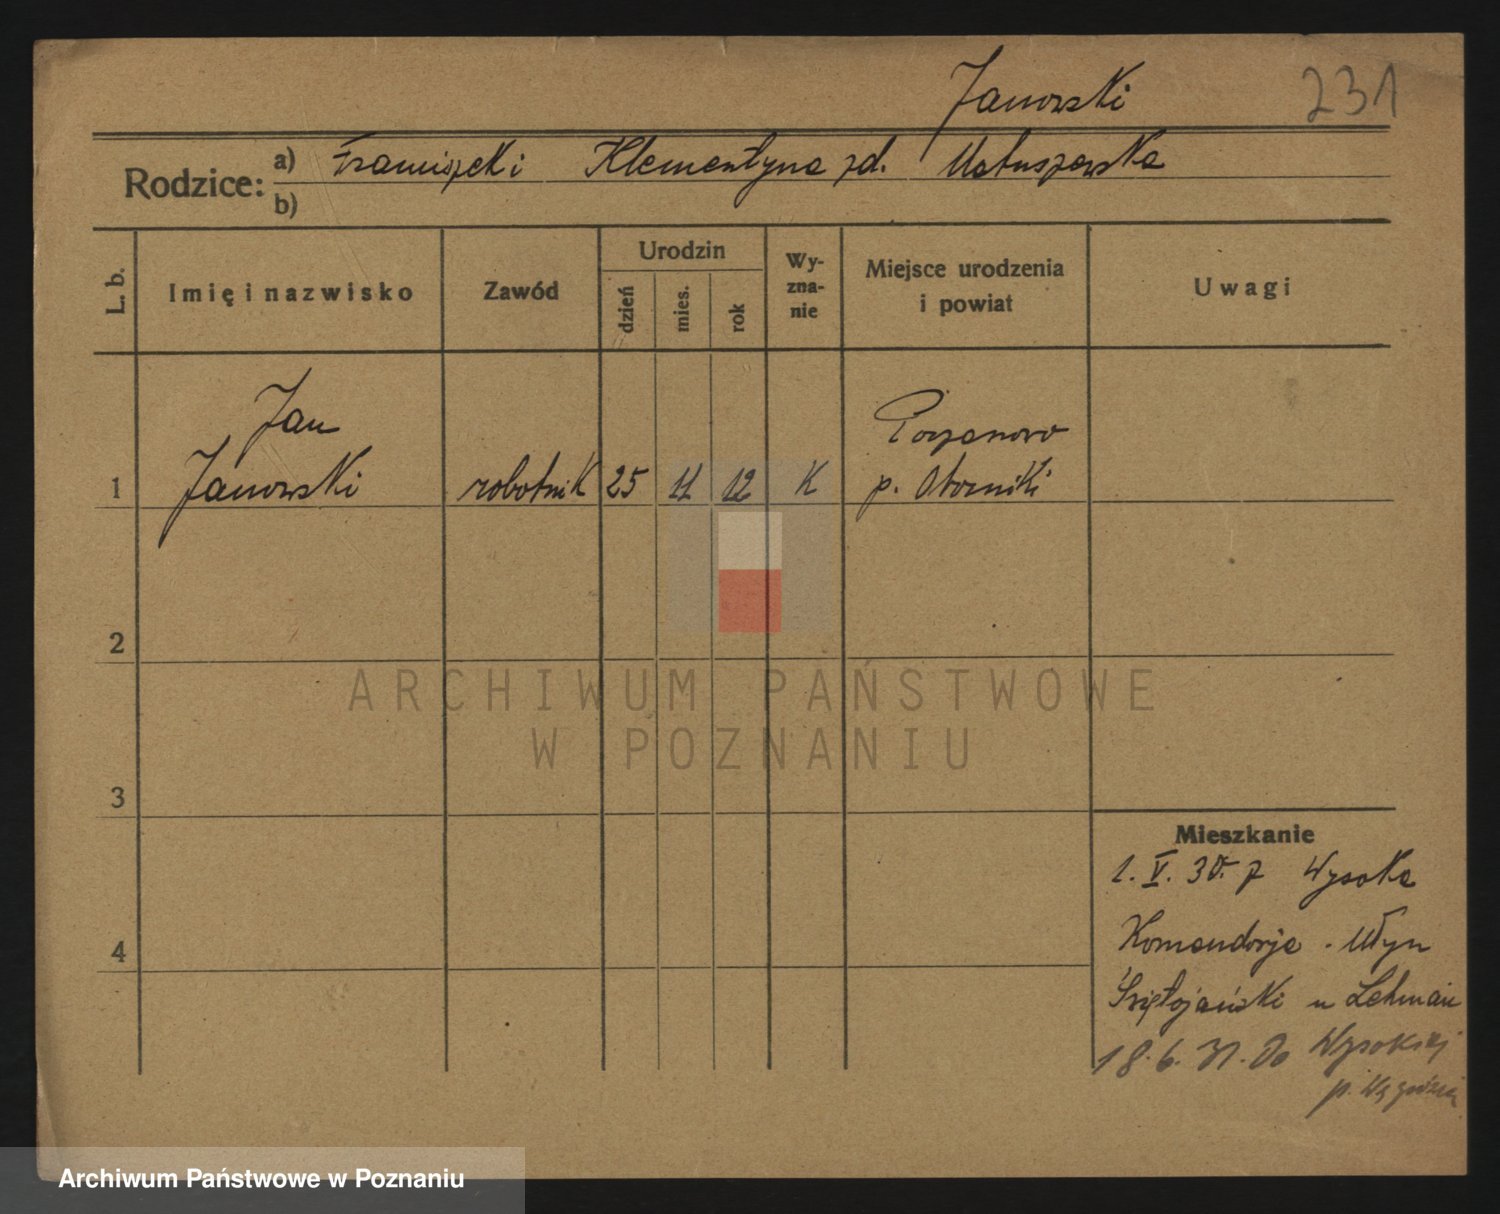 Janowski 231
Rodzice: a) Franciszek i Klementyna zd. Matuszewska
b)
L. b. Imię i nazwisko Zawód Urodzin dzień mies. rok Wyznanie Miejsce urodzenia i powiat Uwagi
Jan
1 Janowski robotnik 25 11 12 K
p. Oborniki
2
ARCHIWUM PAŃSTWOWE
W POZNANIU
3
Mieszkanie
1. V. 30. z Wysoka
4 Komandorja - Młyn
Świętojański u Lehman
18. 6. 31. do Wysokiej
p.
Archiwum Państwowe w Poznaniu